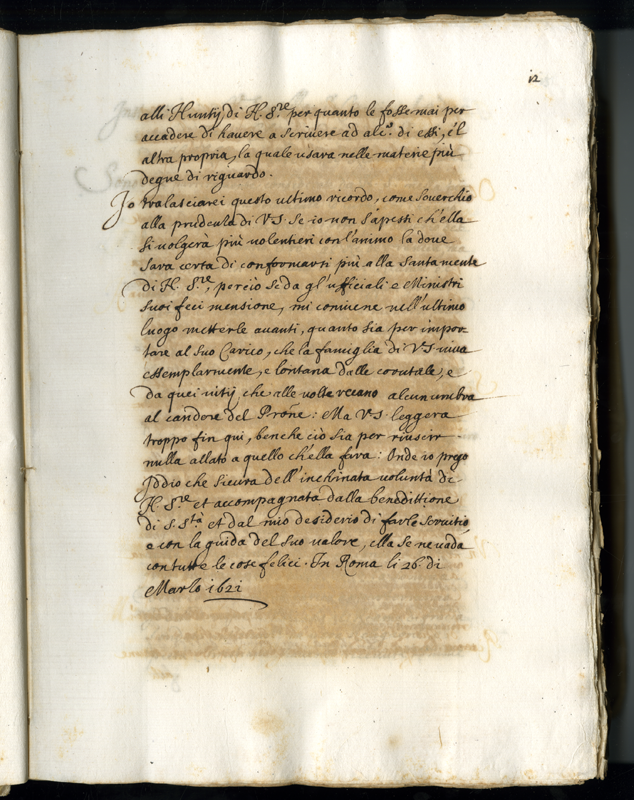 12
alli Nuntij di N. Sre per quanto le fosse mai per
accadere di havere a scrivere ad alco. di essi, è l
altra propria, la quale usava nelle materie più
degne di riguardo.
Io tralasciarei questo ultimo ricordo, come soverchio
alla prudenza di VS. se io non sapessi ch'ella
si volgerà più volentieri con l'animo la dove
sara certa di conformarsi più alla santa mente
di N. Sre, perciò se da gl'ufficiali e Ministri
suoi feci mensione, mi conviene nell'ultimo
luogo metterle avanti, quanto sia per impor-
tare al suo Carico, che la famiglia di VS viva
essemplarmente, e lontana dalle
da quei vitij, che alle volte recano alcun umbra
al candore del Prone: Ma VS leggerà
troppo fin qui, benche ciò sia per riuscir
nulla allato a quello ch'ella fara: Onde io prego
Iddio che sicura dell'inchinata voluntà di
N. Sre et accompagnata dalla benedittione
di S. Sta et dal mio desiderio di farle servitio
e con la guida del suo valore, ella se ne vada
con tutte le cose felici. In Roma li 26 di
Marzo 1621